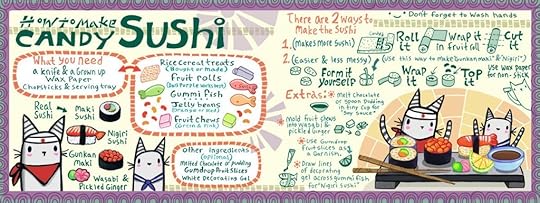 How to Make
CANDY Sushi
What you Need
a knife & a grown up
Wax Paper
Chopsticks & serving tray
Real Sushi
Maki Sushi
Nigiri Sushi
Gunkan Maki
Wasabi & Pickled Ginger
Rice cereal treats
(Bought or made)
Fruit rolls
Gummi fish
Jelly beans
(orange or red)
Fruit chews
(Green & Pink)
Other ingredients
(optional)
Melted chocolate or pudding
Gumdrop Fruit Slices
White Decorating Gel
There are 2 Ways to
Make the Sushi
Don't Forget to Wash hands
1. (makes more sushi)
Roll it
Wrap it in fruit roll
Cut it
2. (Easier & less messy)
(Use this way to make Gunkan maki & Nigiri)
Form it yourself
Wrap it
Top it
Use wax paper for non-stick
Extras:
Melt chocolate
or spoon pudding
in tiny cup for
"Soy Sauce"
Mold fruit chews
into wasabi &
pickled ginger
Use Gumdrop
fruit slices as
a Garnish
Draw lines
of decorating
gel across gummi fish
for "Nigiri Sushi"